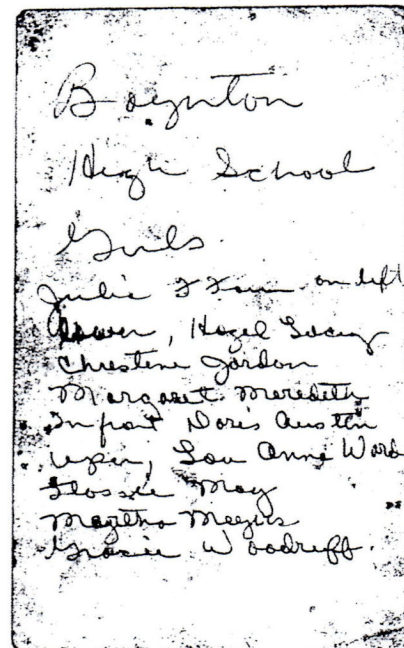 Boynton
High School
Girls.
Julia on left
Hazel
Christine Jordon
Margaret Meredith
In front Doris Austin
upper, Lou Anne Ward
Flossie May
Meyers
Gracie Woodruff.